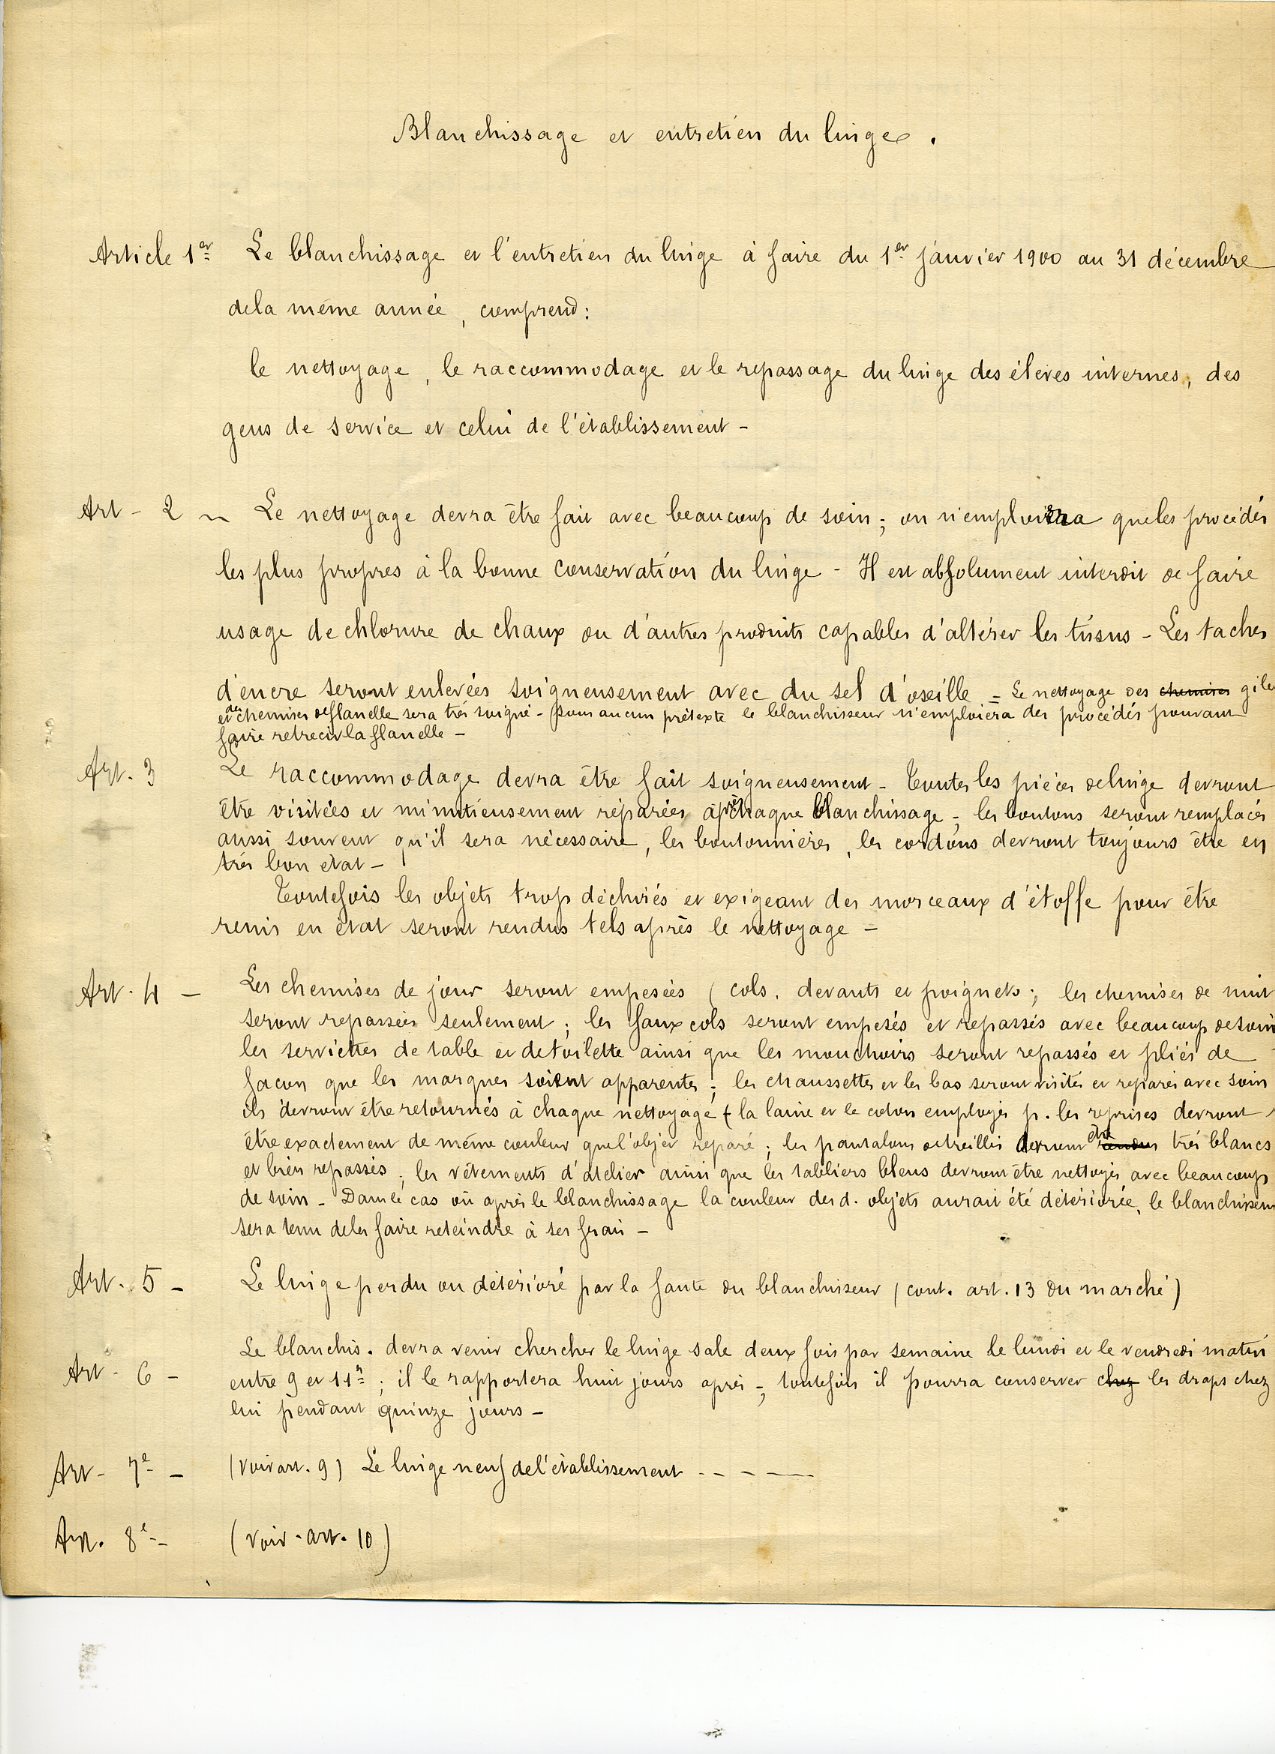 Blanchissage et entretien du linge.
Article 1er Le blanchissage et l'entretien du linge à faire du 1er janvier 1900 au 31 décembre
de la même année, comprend:
le nettoyage, le raccommodage et le repassage du linge des élèves internes, des
gens de service et celui de l'établissement -
Art - 2 - Le nettoyage devra être fait avec beaucoup de soin; on n'emploiera que les procédés
les plus propres à la bonne conservation du linge - Il est absolument interdit de faire
usage de chlorure de chaux ou d'autres produits capables d'altérer les tissus - Les taches
d'encre seront enlevées soigneusement avec du sel d'oseille - Le nettoyage des chemises gile
et de chemises de flanelle sera très soigné - Sous aucun prétexte le blanchisseur n'emploiera des procédés pouvant
faire retrecir la flanelle -
Art. 3 Le raccommodage devra être fait soigneusement - Toutes les pièces de linge devront
être visitées et minutieusement réparées après chaque blanchissage; les boutons seront remplacés
aussi souvent qu'il sera nécessaire, les boutonnières, les cordons devront toujours être en
très bon état -
Toutefois les objets trop déchirés et exigeant des morceaux d'étoffe pour être
remis en état seront rendus tels après le nettoyage -
Art. 4 - Les chemises de jour seront empesées (cols, devants et poignets; les chemises de nuit
seront repassées seulement; les faux cols seront empesés et repassés avec beaucoup de soin
les serviettes de table et de toilette ainsi que les mouchoirs seront repassés et pliés de
façon que les marques soient apparentes; les chaussettes et les bas seront visités et réparés avec soin
ils devront être retournés à chaque nettoyage (la laine et le coton employés p. les reprises devront
être exactement de même couleur que l'objet réparé; les pantalons de treillis devront être très blancs
et bien repassés; les vêtements d'atelier ainsi que les tabliers bleus devront être nettoyés avec beaucoup
de soin - Dans le cas où après le blanchissage la couleur des d. objets aurait été détériorée, le blanchisseur
sera tenu de les faire reteindre à ses frais -
Art. 5 - Le linge perdu ou détérioré par la faute du blanchisseur (cont. art. 13 du marché)
Art - 6 - Le blanchis. devra venir chercher le linge sale deux fois par semaine le lundi et le vendredi matin
entre 9 et 11h; il le rapportera huit jours après -; toutefois il pourra conserver chez les draps chez
lui pendant quinze jours -
Art - 7e - (voir art. 9) Le linge neuf de l'établissement - - - -
Art. 8e - (voir - art. 10)